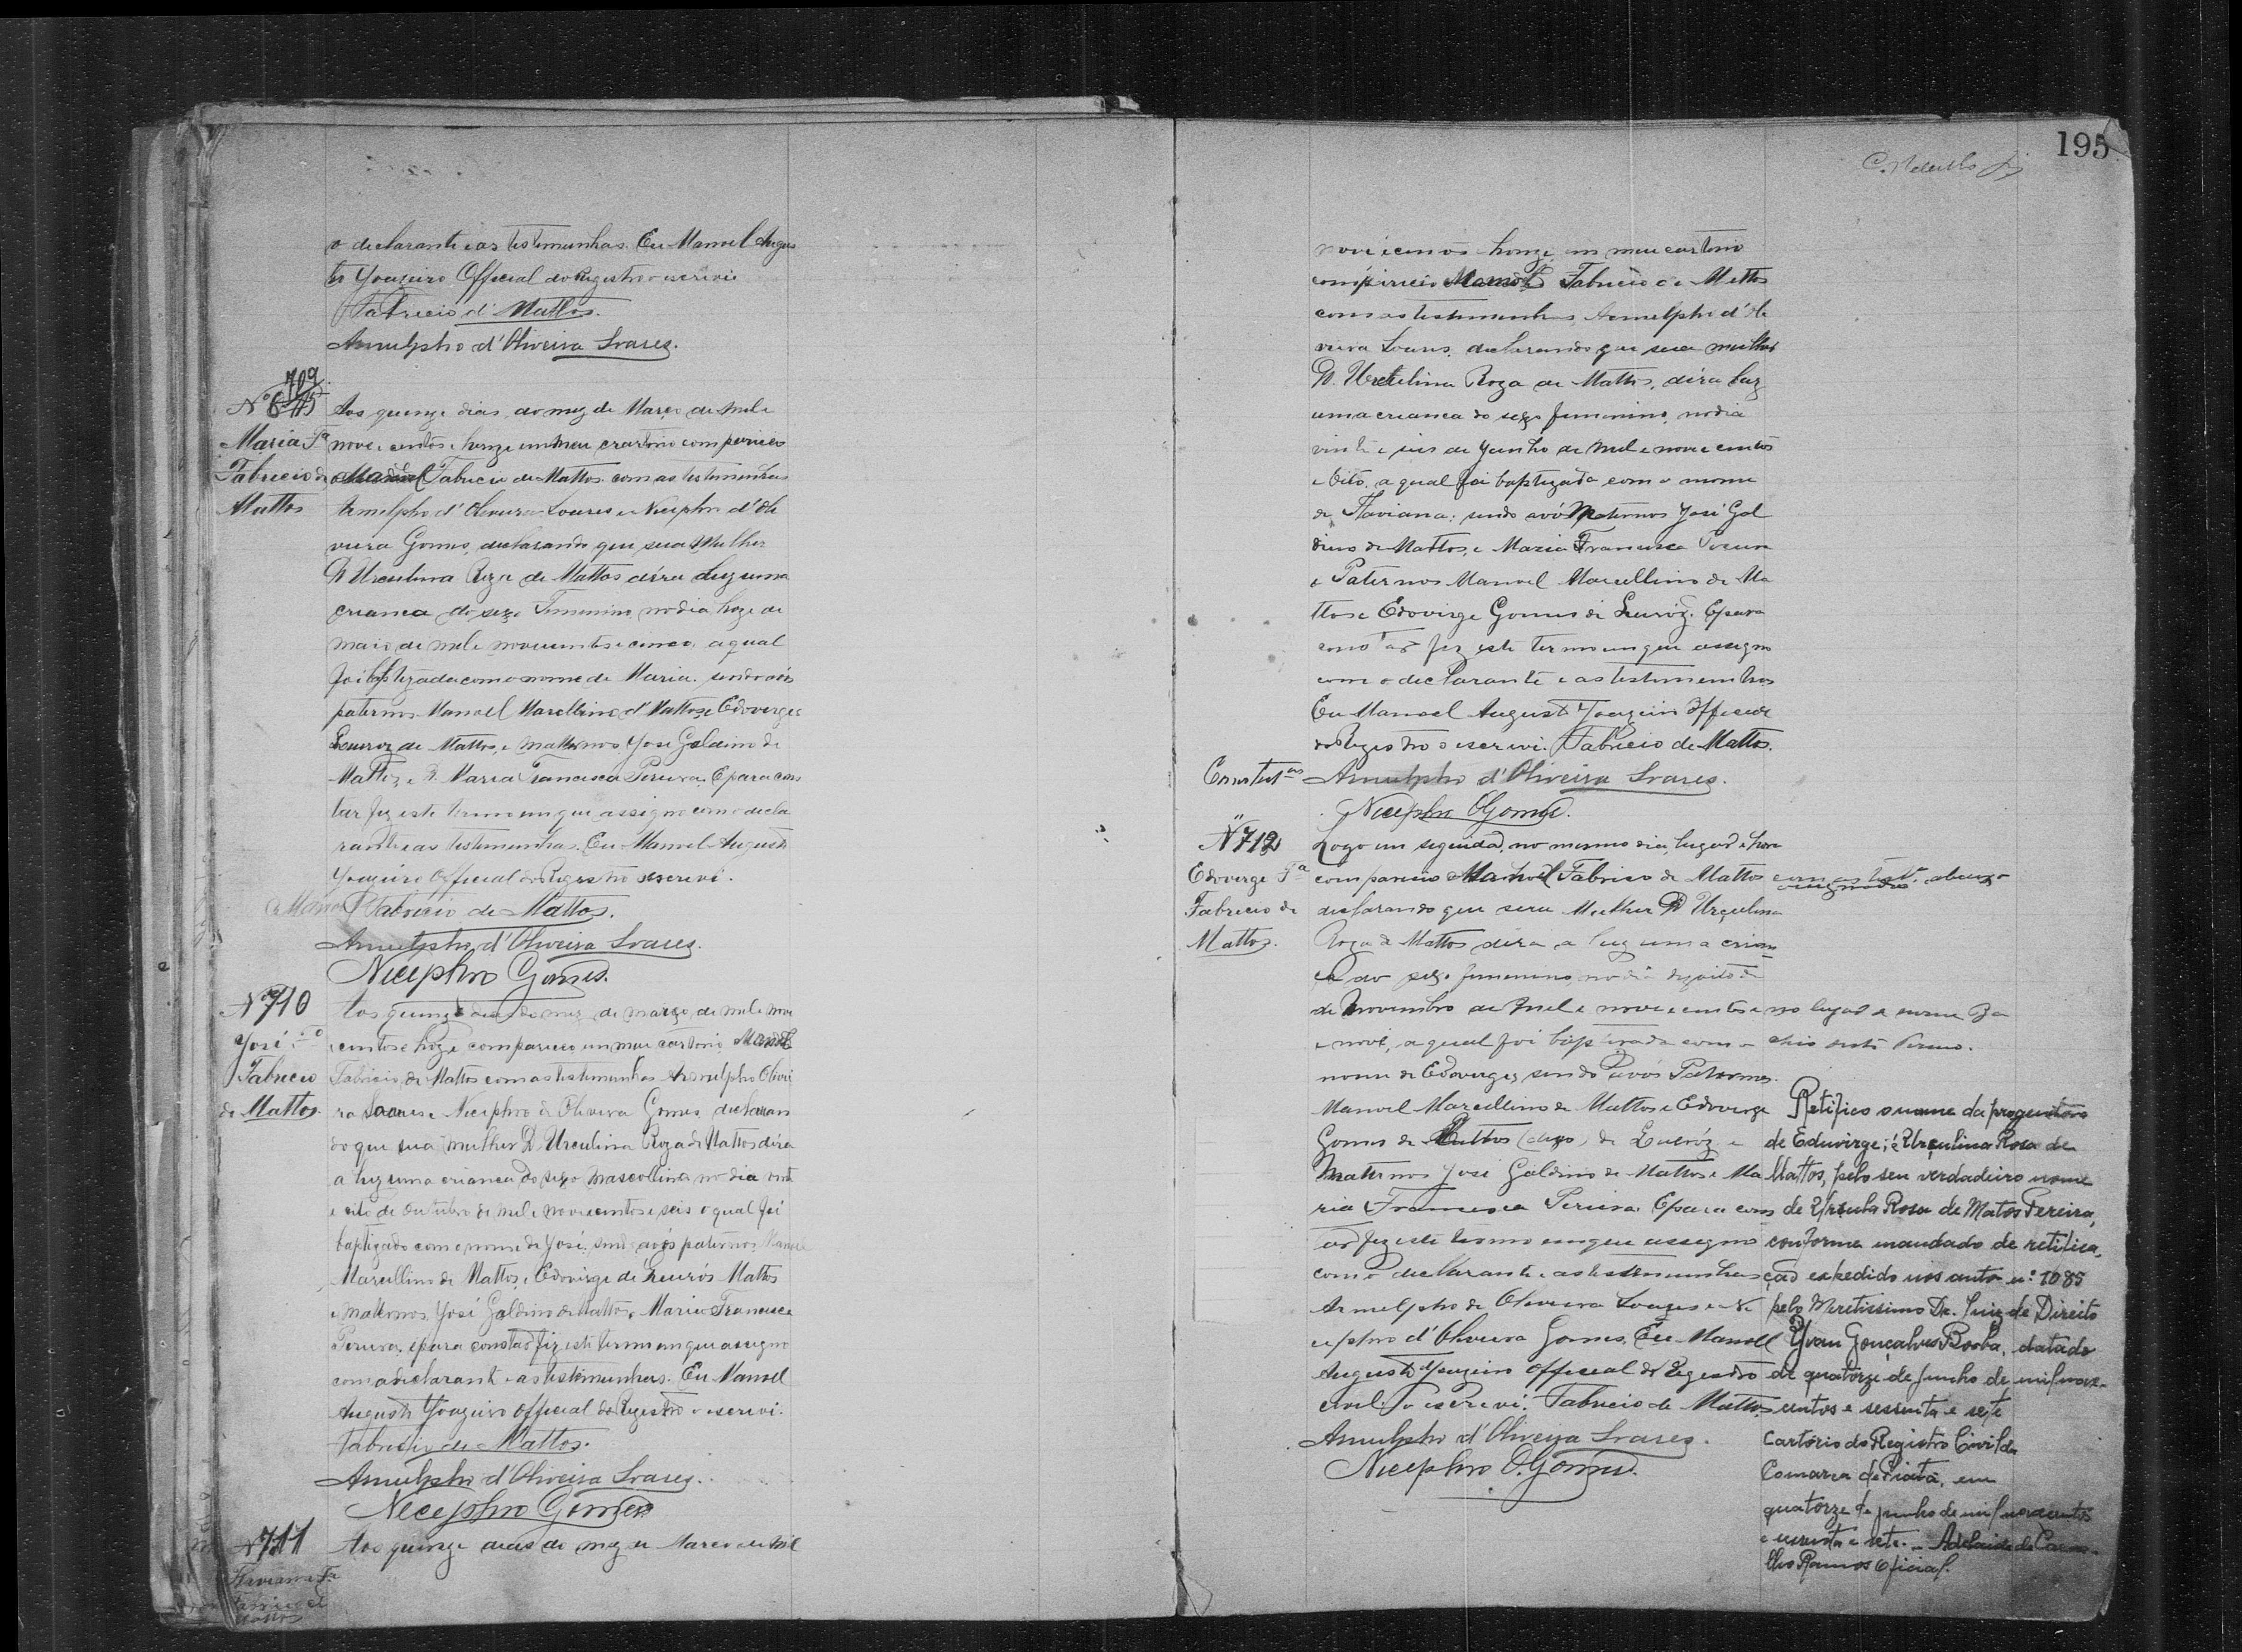 195
o declarante e as testemunhas. Eu Manoel Augus
to Joazeiro Official do Registro o escrevi
Fabricio d' Mattos.
Arnulpho d'Oliveira Soares.
709
Nº 645
Maria Fª
Fabricio de
Mattos
Aos quinze dias do mez de Março de mil e
nove centos e honze em meu cartorio compareceo
Manoel Fabricio de Mattos com as testemunhas
Arnulpho d'Oliveira Soares e Nicephro d'Oli
veira Gomes, declarando que sua Mulher
D Urculina Roza de Mattos déra a luz uma
creanca do sexo Femenino no dia hoze de
maio de mil e novecentos e cinco, a qual
foi baptizada com o nome de Maria. sendo avós
paternos Manoel Marcellino d' Mattos e Edoverges
Queiroz de Mattos, e matternos José Galdino de
Mattos e D. Maria Francisca Pereira. E para cons
tar fiz este termo em que assigno com o decla
rante e as testemunhas. Eu Manoel Augusto
Joazeiro Official do Registro o escrevi.
Fabricio de Mattos.
Arnulpho d'Oliveira Soares.
Nicephro Gomes.
Nº 710
José Fº
Fabricio
de Mattos
Aos quinze dias do mez de março de mil e nove
centos e hoze compareceo em meu cartorio Manoel
Fabricio de Mattos com as testemunhas Arnulpho Olivei
ra Soares e Nicephro de Oliveira Gomes declaran
do que sua mulher D Urculina Roza de Mattos déra
a luz uma crianca do sexo mascollino no dia vinte
e oito de outubro de mil e novecentos e seis o qual foi
baptizado com o nome de José, sendo avós paternos Manoel
Marcellino de Mattos, e Edovirge de Queirós Mattos
e matternos José Galdino de Mattos e Maria Francisca
Pereira, e para constar fiz este termo em que assigno
com o declarante e as testemunhas. Eu Manoel
Augusto Joazeiro Official do Registro o escrevi.
Fabricio de Mattos.
Arnulpho d'Oliveira Soares.
Nicephro Gomes
Nº 711
Flaviana Fª
Fabricio de
Mattos
Aos quinze dias do mez de Marco de mil
nove centos honze em meu cartorio
compareceo Manoel Fabricio de Mattos
com as testemunhas Arnulpho d'Oli
veira Soares, declarando que sua mulher
D. Urculina Roza de Mattos, déra luz
uma creanca do sexo femenino, no dia
vinte e seis de Junho de mil e nove centos
e oito, a qual foi baptizada com o nome
de Flaviana; sendo avós Maternos José Gal
dino de Mattos, e Maria Francisca Pereira
e Paternos Manoel Marcellino de Ma
ttos e Edovirge Gomes de Queiróz. E para
constar fiz este termo em que assigno
com o declarante e as testemunhas
Eu Manoel Augusto Joazeiro Official
do Registro o escrevi. Fabricio de Mattos.
Arnulpho d'Oliveira Soares.
Nicephro O Gomes.
Nº 712
Edoverge Fª
Fabricio de
Mattos.
Logo em seguida, no mesmo dia, lugar e hora
compareceo Manoel Fabricio de Mattos com as testª. abaixo
assignadas
declarando que sua Mulher D Urçulina
Roza de Mattos déra a luz uma crian
ca do sexo femenino, no dia dezoito
de Novembro de mil e nove centos e
e nove, a qual foi baptizada com o
nome de Edoverges, sendo avós Paternos
Manoel Marcellino de Mattos e Edoverge
Gomes de Mattos (digo) de Queróz e
Maternos José Galdino de Mattos e Ma
ria Francisca Pereira. E para cons
tar fiz este termo em que assigno
com o declarante e as testemunhas
Arnulpho de Oliveira Soares e Ni
cephro d'Oliveira Gomes. Eu Manoel
Augusto Joazeiro Official do Registro
civil o escrevi. Fabricio de Mattos
Arnulpho d'Oliveira Soares.
Nicephro O. Gomes.
no lugar
Retifico o nome da progenitora
de Eduvirge; é Urçulina Rosa de
Mattos, pelo seu verdadeiro nome
de Ursula Rosa de Matos Pereira,
conforme mandado de retifica,
ção expedido nos autos nº. 1085
pelo Meretissimo Dr. Juiz de Direito
Yvan Gonçalves Borba, datado
de quatorze de Junho de mil nove-
centos e sessenta e sete
Cartório do Registro Civil da
Comarca de Piatã, em
quatorze de junho de mil novecentos
e sessenta e sete. - Adelaide de Carva-
lho Ramos Oficial.